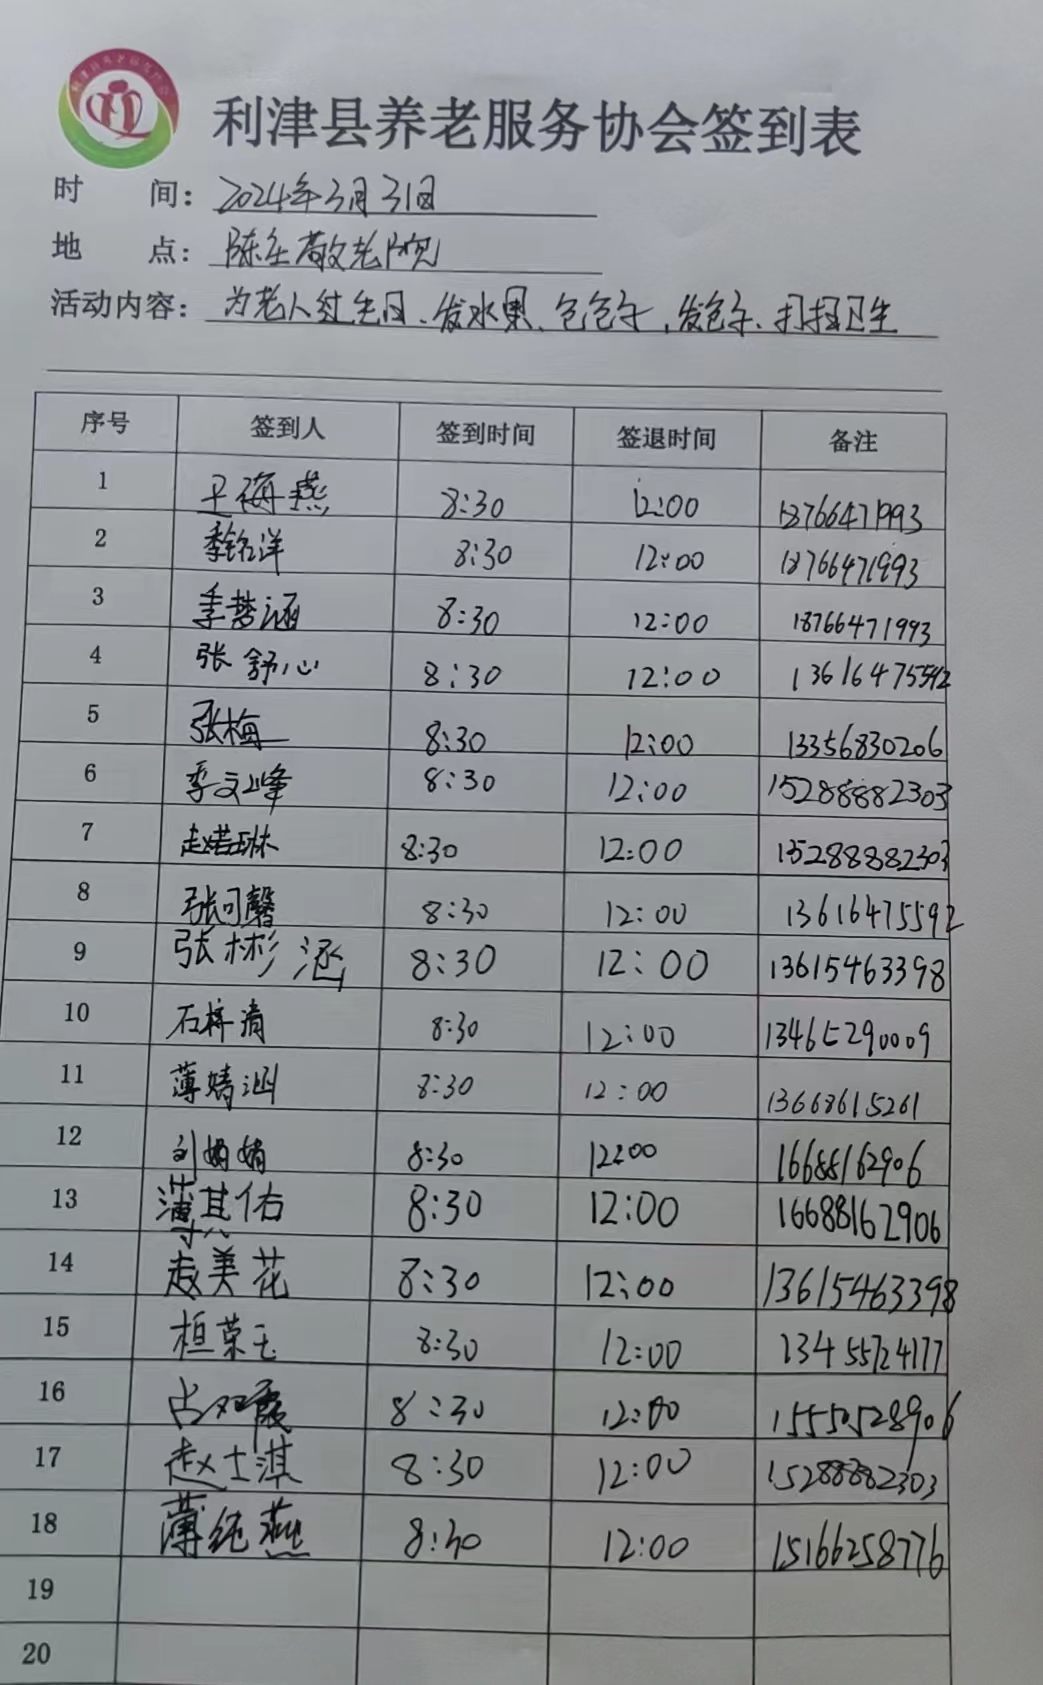 利津县养老服务协会签到表
时 间: 2024年3月31日
地 点: 陈庄敬老院
活动内容: 为老人过生日、发水果、包包子,发包子、打扫卫生
序号 签到人 签到时间 签退时间 备注
1 王海燕 8:30 12:00 18766471993
2 季铭洋 8:30 12:00 18766471993
3 季梦涵 8:30 12:00 18766471993
4 张舒心 8:30 12:00 13616475592
5 张梅 8:30 12:00 13356830206
6 季文峰 8:30 12:00 15288882303
7 赵若琳 8:30 12:00 15288882303
8 张可馨 8:30 12:00 13616475592
9 张彬涵 8:30 12:00 13615463398
10 石梓清 8:30 12:00 13465290009
11 薄婧涵 8:30 12:00 13668615261
12 刘娟娟 8:30 12:00 16688162906
13 薄其佑 8:30 12:00 16688162906
14 赵美花 8:30 12:00 13615463398
15 桓荣玉 8:30 12:00 13455724177
16 古双霞 8:30 12:00 15550528906
17 赵士淇 8:30 12:00 15288882303
18 薄纯燕 8:30 12:00 15166258776
19
20